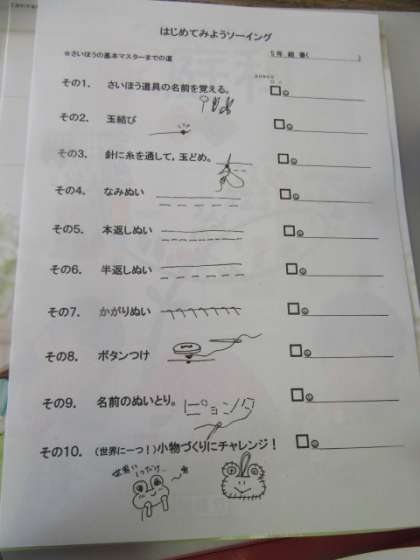 はじめてみようソーイング
※さいほうの基本マスターまでの道
5年 組 番( )
その1. さいほう道具の名前を覚える。
その2. 玉結び
その3. 針に糸を通して,玉どめ。
その4. なみぬい
その5. 本返しぬい
その6. 半返しぬい
その7. かがりぬい
その8. ボタンつけ
その9. 名前のぬいとり。
ピョンタ
その10. (世界に一つ!)小物づくりにチャレンジ!
世界に1つだけ…